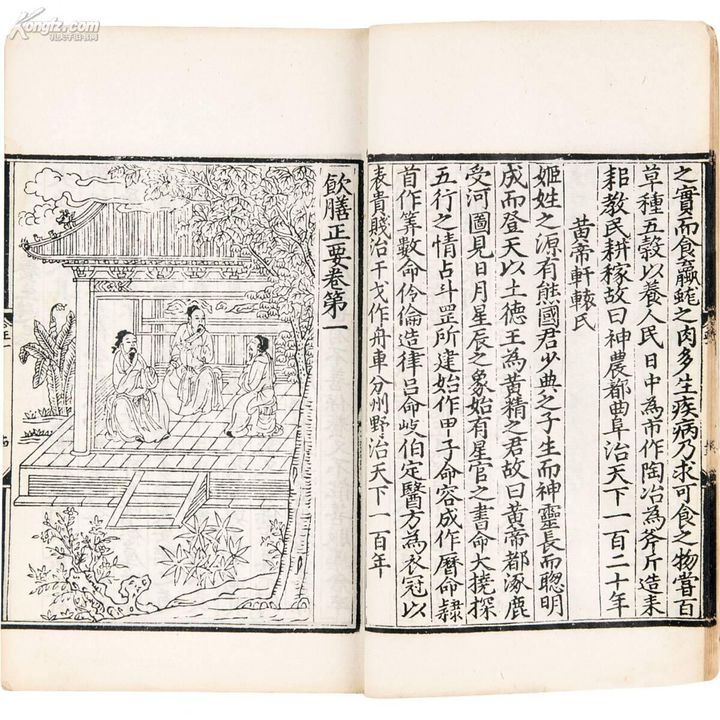 之實而食蠃蛖之肉多生疾病乃求可食之物嘗百
草種五穀以養人民日中為市作陶冶為斧斤造耒
耜教民耕稼故曰神農都曲阜治天下一百二十年
黃帝軒轅氏
姬姓之源有熊國君少典之子生而神靈長而聰明
成而登天以土德王為黃精之君故曰黃帝都涿鹿
受河圖見日月星辰之象始有星官之書命大撓探
五行之情占斗罡所建始作甲子命容成作曆命隸
首作筭數命伶倫造律呂命岐伯定醫方為衣冠以
表貴賤治干戈作舟車分州野治天下一百年
飲膳正要卷第一
Kongfz.com
孔夫子旧书网